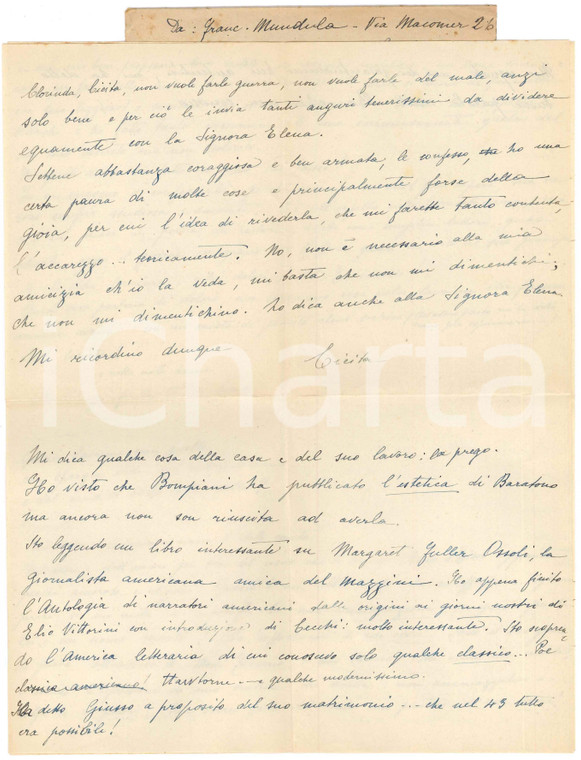 Da: Franc. Mundula - Via Macomer 26
Clorinda, Cicita, non vuole farle guerra, non vuole farle del male, anzi
solo bene e per ciò le invia tanti auguri tenerissimi da dividere
egualmente con la Signora Elena.
Sebbene abbastanza coraggiosa e ben armata, le confesso, ho una
certa paura di molte cose e principalmente forse della
gioia, per cui l'idea di rivederla, che mi farebbe tanto contenta,
l'accarezzo... teoricamente. No, non è necessario alla mia
amicizia ch'io la veda, mi basta che non mi dimentichi;
che non mi dimentichino. Lo dica anche alla Signora Elena
Mi ricordino dunque
Cicita
iCharta
Mi dica qualche cosa della casa e del suo lavoro: la prego.
Ho visto che Bompiani ha pubblicato l'estetica di Baratono
ma ancora non son riuscita ad averla.
Sto leggendo un libro interessante su Margaret Fuller Ossoli, la
giornalista americana amica del Mazzini. Ho appena finito
l'Antologia di narratori americani dalle origini ai giorni nostri di
Elio Vittorini con introduzione di Cecchi: molto interessante. Sto scopren-
do l'America letteraria di cui conoscevo solo qualche classico... Poe
classico americano! Hawtorne... e qualche modernissimo.
Ha detto Giusso a proposito del suo matrimonio... che nel 43 tutto
era possibile!